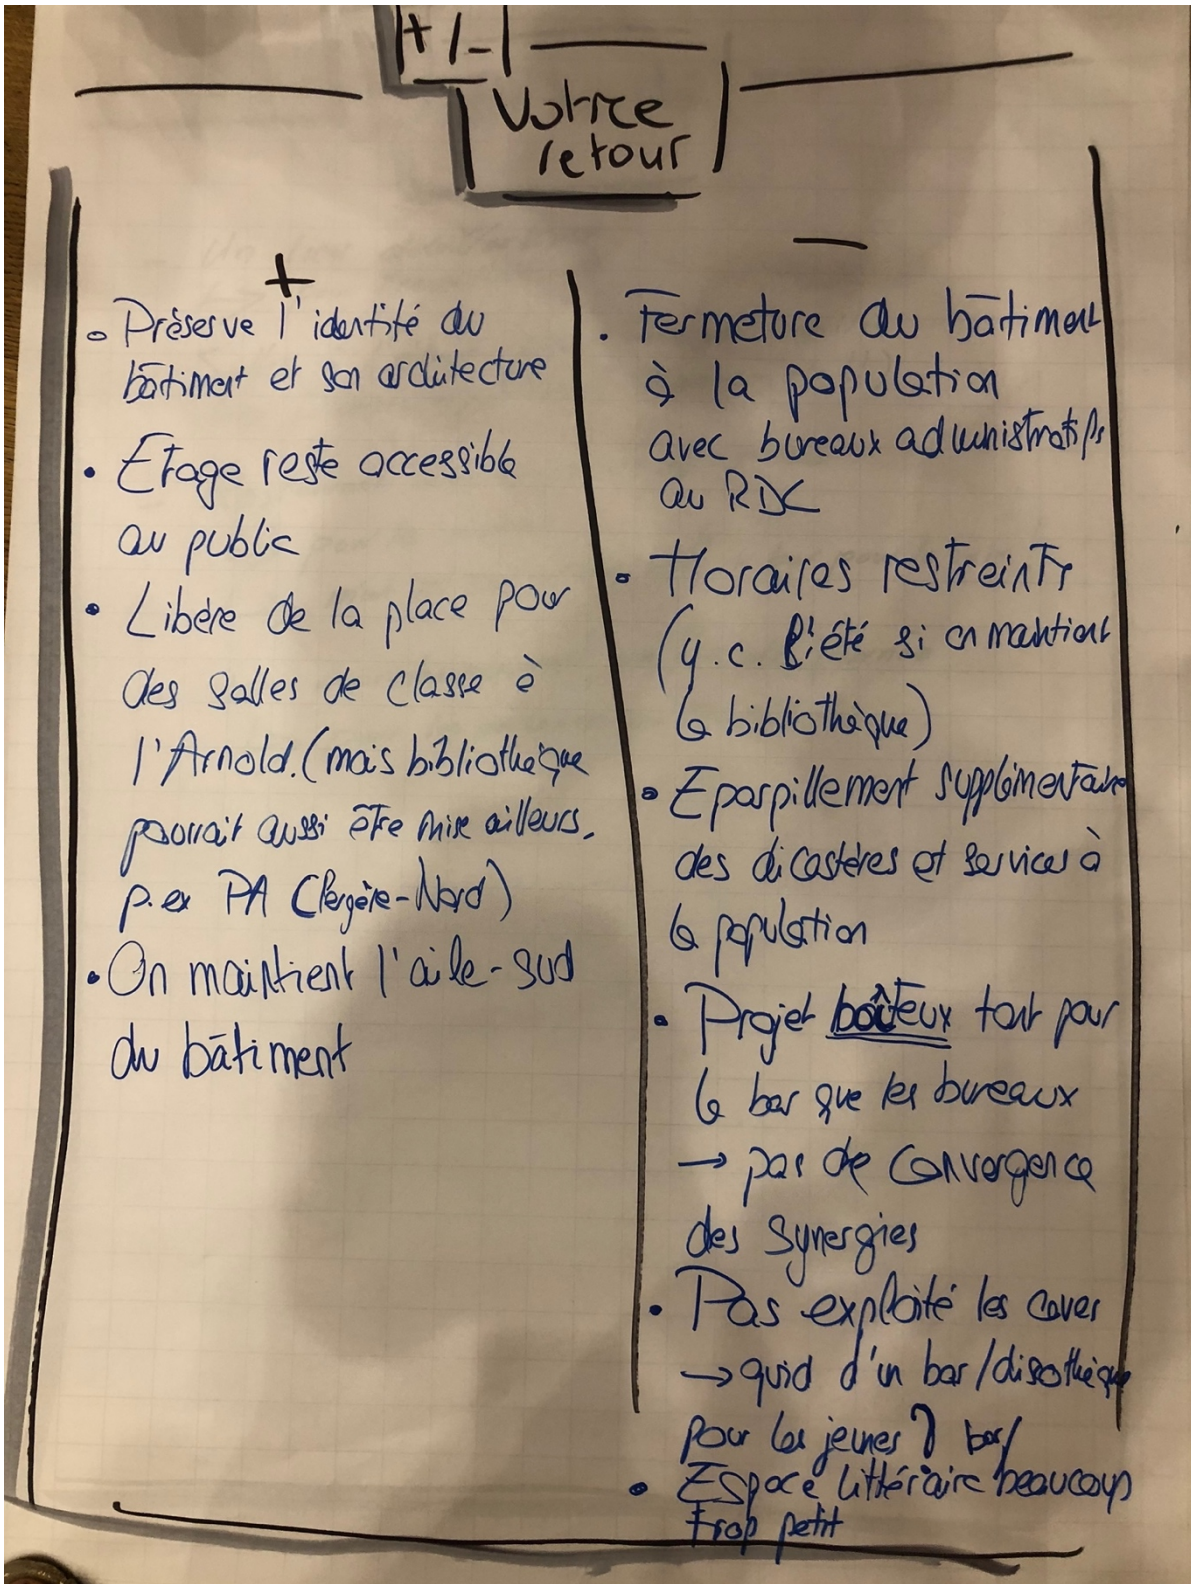 +/-
Votre
retour
+
• Préserve l'identité du
bâtiment et son architecture
• Etage reste accessible
au public
• Libère de la place pour
des salles de classe à
l'Arnold. (mais bibliothèque
pourrait aussi être mise ailleurs.
p.ex PA (Pergère-Nord)
• On maintient l'aile-sud
du bâtiment
—
• Fermeture du bâtiment
à la population
avec bureaux administratifs
au RDC
• Horaires restreints
(y.c. l'été si on maintient
la bibliothèque)
• Eparpillement supplémentaire
des dicastères et services à
la population
• Projet boîteux tant pour
le bar que les bureaux
→ pas de convergence
des synergies
• Pas exploité les caves
→ quid d'un bar/discothèque
pour les jeunes ?
• Espace littéraire bar/ beaucoup
trop petit